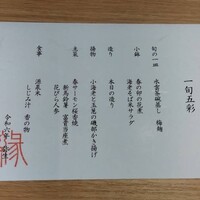 一旬五彩
旬の一皿 氷雲茶碗蒸し 梅麹
小鉢 春の卵の花煮
海老そば米サラダ
造り 本日の造り
揚物 小海老と玉葱の磯部かき揚げ
主菜 春サーモン桜香焼
新馬鈴薯 富貴当座煮
花びら人参
食事 源泉米 香の物
しじみ汁
令和六年
縁